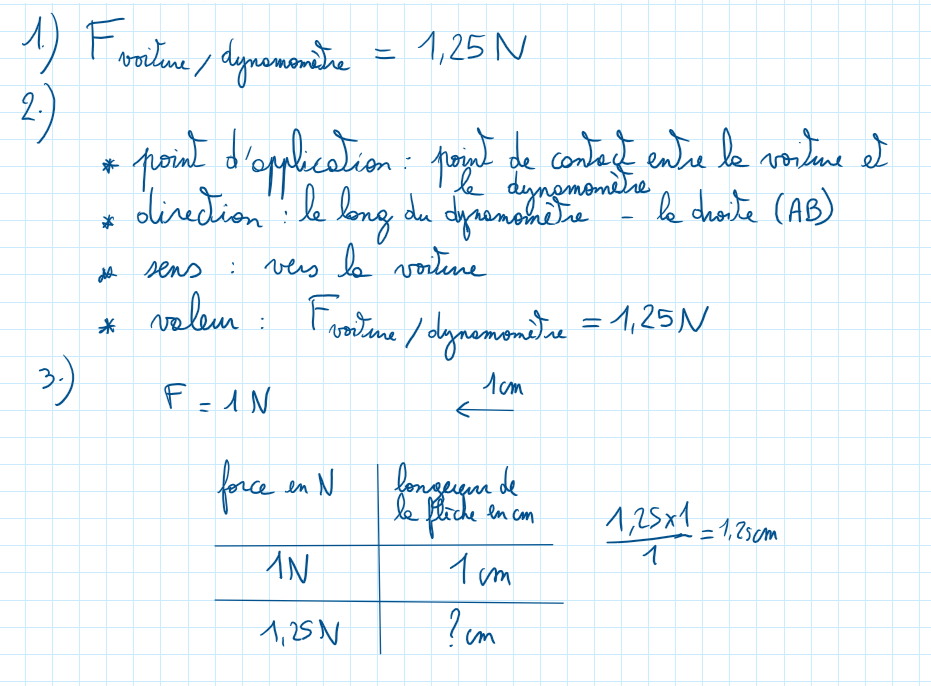 1.) F voiture / dynamomètre = 1,25 N
2.)
* point d'application : point de contact entre la voiture et
le dynamomètre
* direction : le long du dynamomètre - la droite (AB)
* sens : vers la voiture
* valeur : F voiture / dynamomètre = 1,25 N
3.)
F = 1 N
1 cm
←
force en N
longueur de
la flèche en cm
1,25x1/1 = 1,25 cm
1N
1 cm
1,25 N
? cm